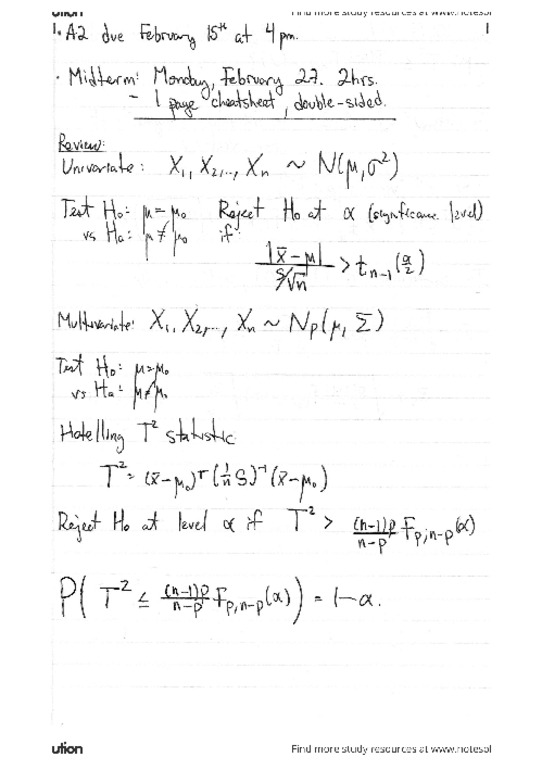 ution Find more study resources at www.notesol
1. A2 due February 15th at 4pm. 1
· Midterm: Monday, February 27. 2hrs.
- 1 page cheatsheet, double-sided.
Review:
Univariate: X₁, X₂,..., Xₙ ~ N(μ, σ²)
Test H₀: μ = μ₀ Reject H₀ at α (significance level)
vs Hₐ: μ ≠ μ₀ if:
|x̄ - μ| / (s/√n) > tₙ₋₁(α/2)
Multivariate: X₁, X₂,..., Xₙ ~ Nₚ(μ, Σ)
Test H₀: μ = μ₀
vs Hₐ: μ ≠ μ₀
Hotelling T² statistic:
T² = (x̄ - μ₀)ᵀ (1/n S)⁻¹ (x̄ - μ₀)
Reject H₀ at level α if T² > (n-1)p/(n-p) F_{p,n-p}(α)
P( T² ≤ (n-1)p/(n-p) F_{p,n-p}(α) ) = 1-α.
ution Find more study resources at www.notesol